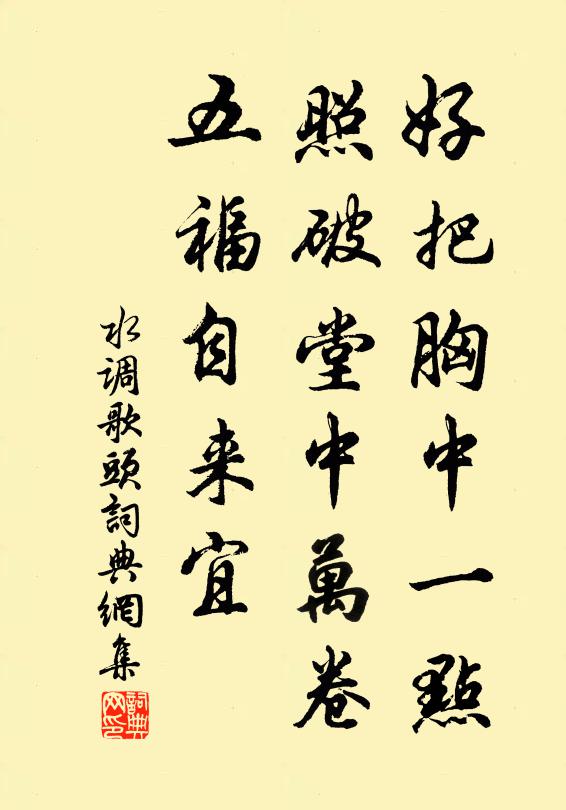 好把胸中一點
照破堂中萬卷
五福自来宜
水調歌頭詞典網集
詞典网印